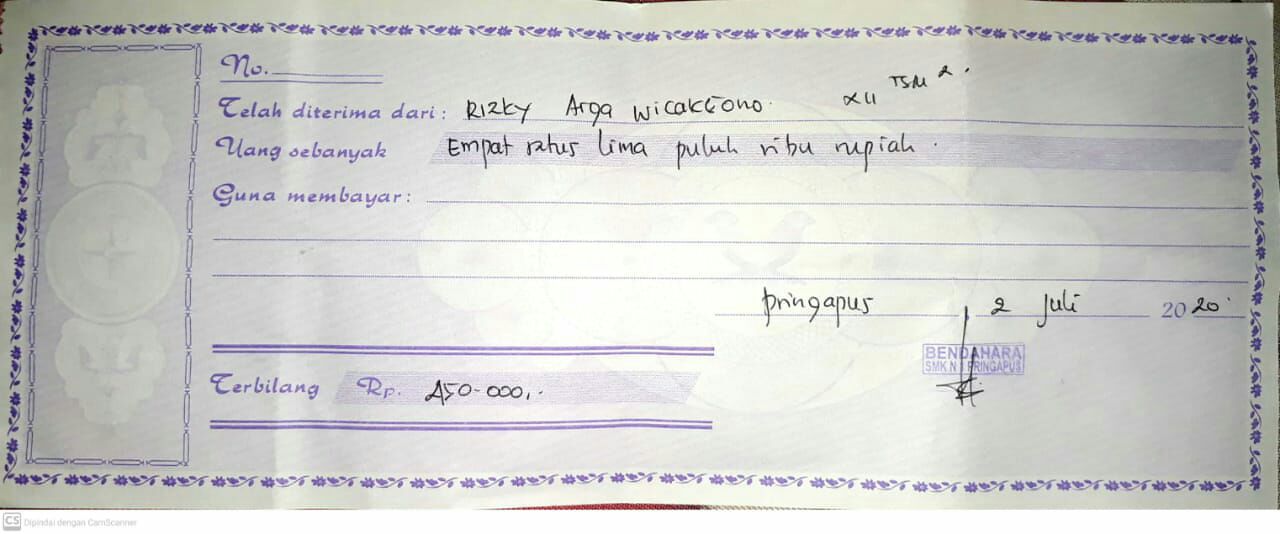 No.
Telah diterima dari : RIZKY Arga Wicaksono. XII TSM 2.
Uang sebanyak Empat ratus lima puluh ribu rupiah.
Guna membayar :
Pringapus 2 Juli 2020.
BENDAHARA
SMK N 1 PRINGAPUS
Terbilang Rp. 450.000,.
CS Dipindai dengan CamScanner